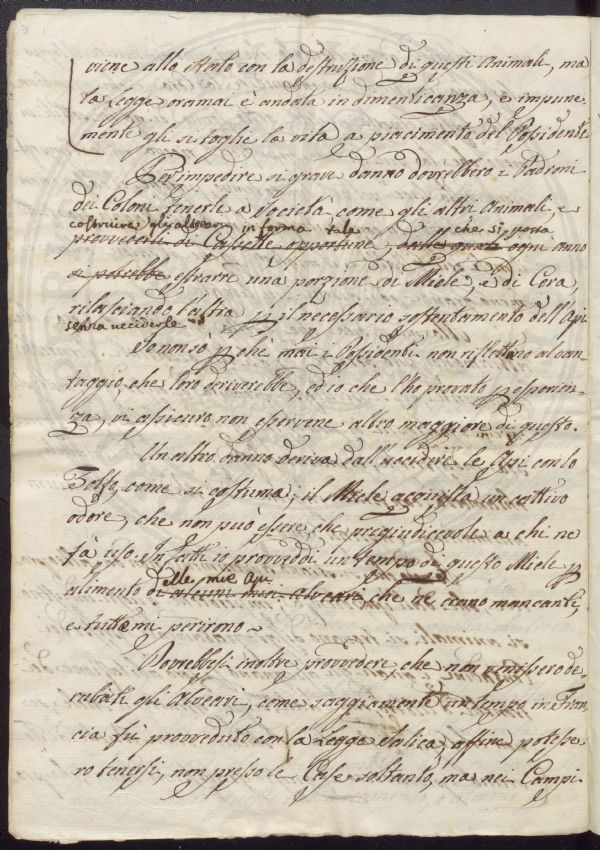 viene allo Stato con la destruzione di questi Animali, ma
la Legge oramai è andata in dimenticanza, e impune
mente gli si toglie la vita a piacimento del Possidente
Per impedire sì grave danno dovrebbero i Padroni
dei Coloni tenerle a Società come gli altri Animali, e
costruire gli alveari in forma tale
provvederli di Cassette opportune, dalle quali ogni anno
che si possa
si potrebbe estrarre una porzione di Miele, e di Cera,
rilasciando l'altra p il necessario sostentamento dell'Api
senza ucciderle
Io non sò p chè mai i Possidenti non riflettino al van
taggio, che loro deriverebbe, ed io che l'ho provato p esperien
za, vi assicuro non esservene altro maggiore di questo.
Un altro danno deriva dall'uccidere le Api con lo
Solfo, come si costuma; il Miele acquista un cattivo
odore, che non può essere che pregiudicevole a chi ne
fà uso. Infatti io provveddi un tempo di questo Miele p
alimento di alcuni miei Alveari che ne erano mancanti,
elle mie Api
e tutte mi perirono.
Dovrebbesi inoltre provvedere che non venissero de
rubati gli Alveari, come saggiamente un tempo in Fran
cia fù provveduto con la Legge Salica, affine potesse
ro tenersi, non presso le Case soltanto, ma nei Campi